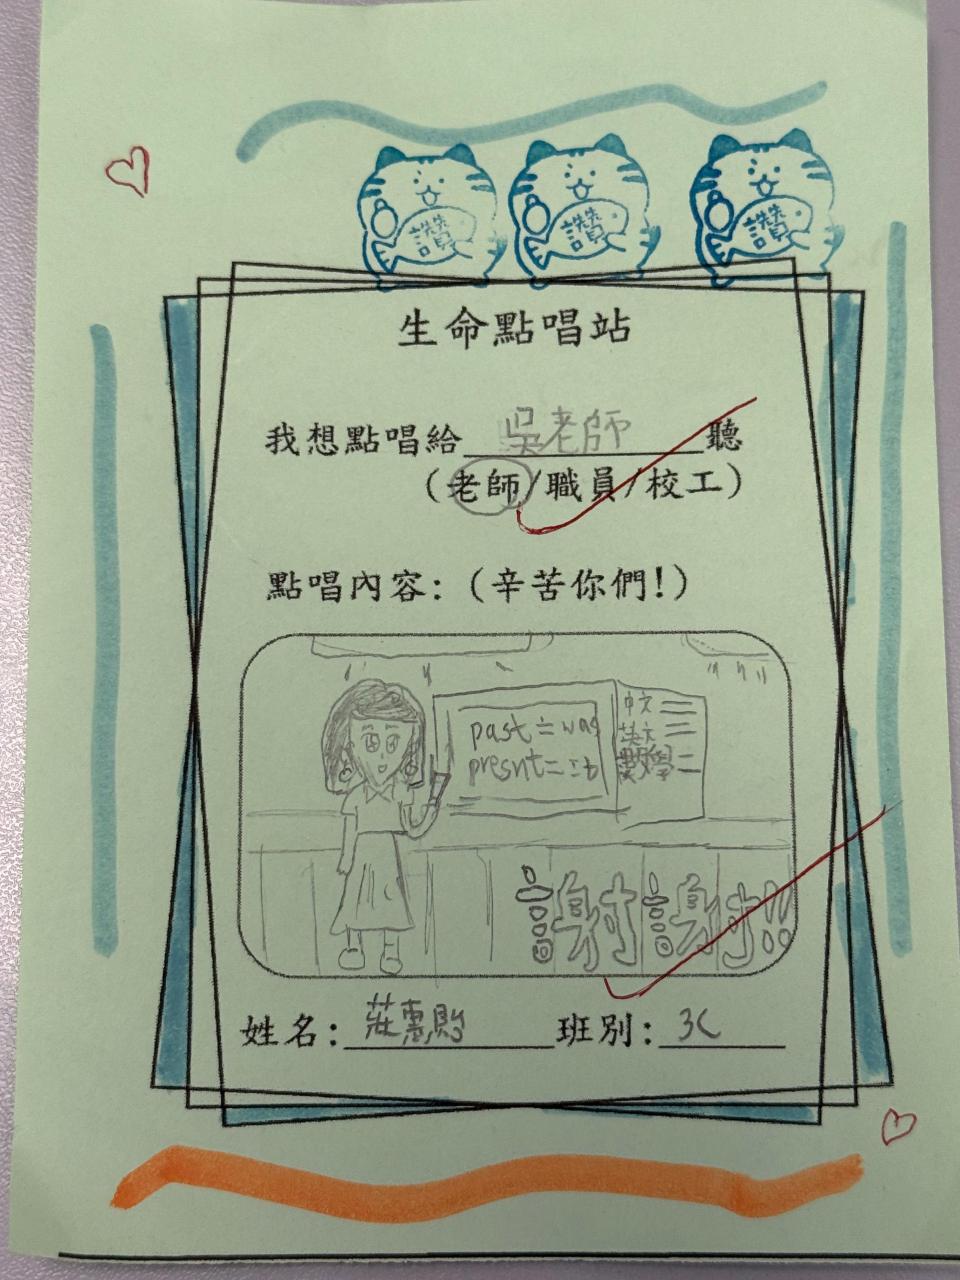 讚 讚 讚
生命點唱站
我想點唱給吳老師聽
(老師/職員/校工)
點唱內容:(辛苦你們!)
past = was
presnt = is
中文
英文
數學
謝謝!!
姓名:莊惠 班別:3C